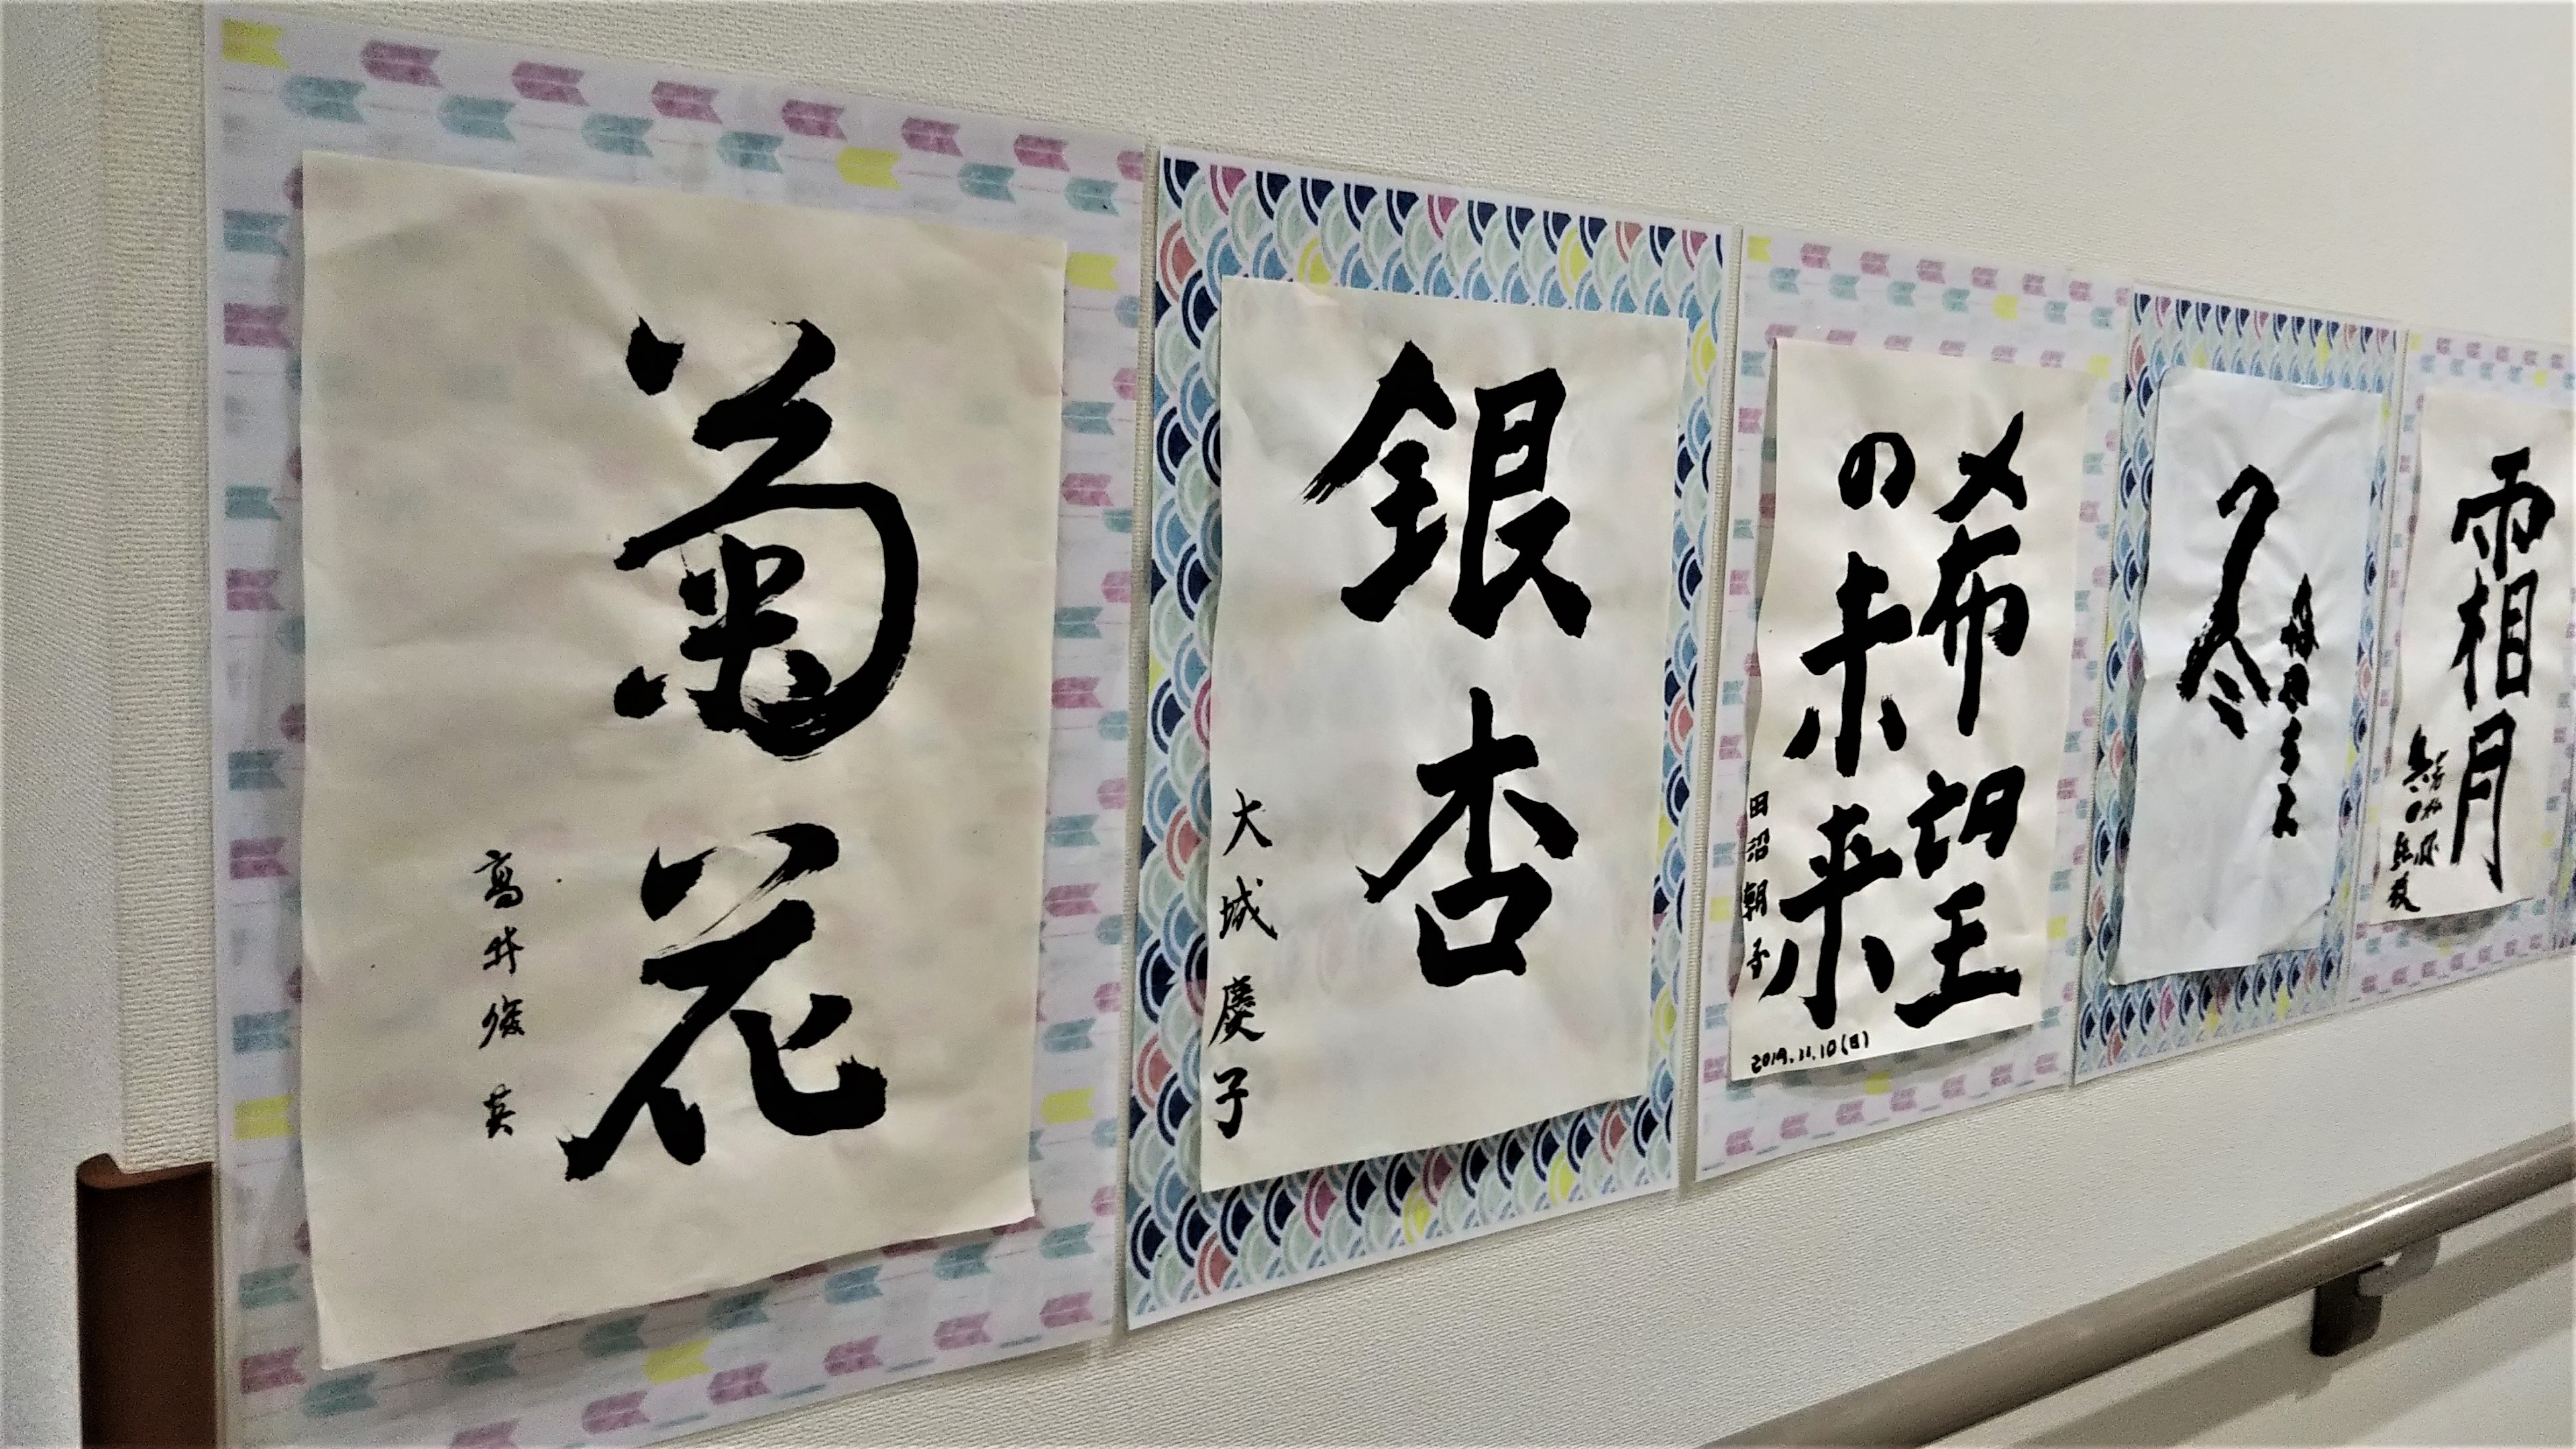 菊花
高井俊英
銀杏
大城慶子
希望
の未来
田沼朝子
2019.11.10(日)
冬
霜月